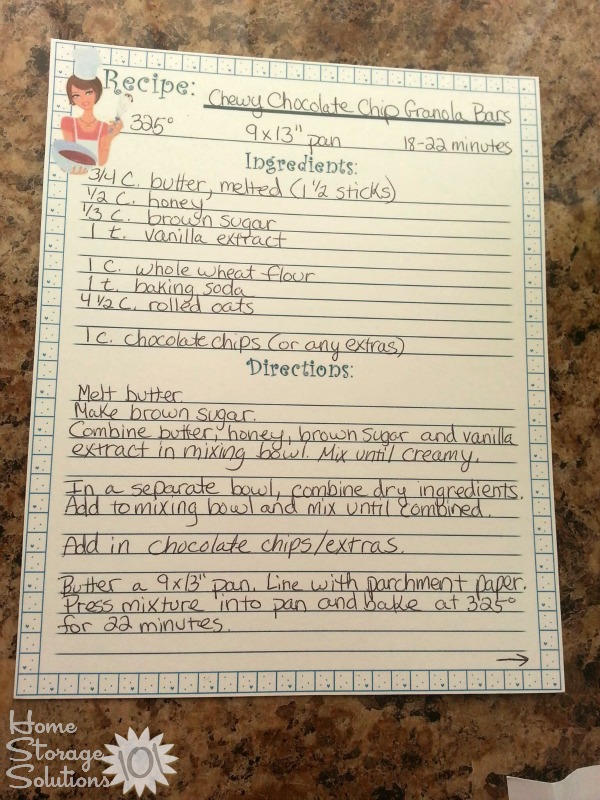 Recipe: Chewy Chocolate Chip Granola Bars
325° 9x13" pan 18-22 minutes
Ingredients:
3/4 C. butter, melted (1 1/2 sticks)
1/2 C. honey
1/3 C. brown sugar
1 t. vanilla extract
1 C. whole wheat flour
1 t. baking soda
4 1/2 C. rolled oats
1 C. chocolate chips (or any extras)
Directions:
Melt butter
Make brown sugar.
Combine butter, honey, brown sugar and vanilla
extract in mixing bowl. Mix until creamy.
In a separate bowl, combine dry ingredients.
Add to mixing bowl and mix until combined.
Add in chocolate chips/extras.
Butter a 9x13" pan. Line with parchment paper.
Press mixture into pan and bake at 325°
for 22 minutes.
→
Home
Storage
Solutions 101